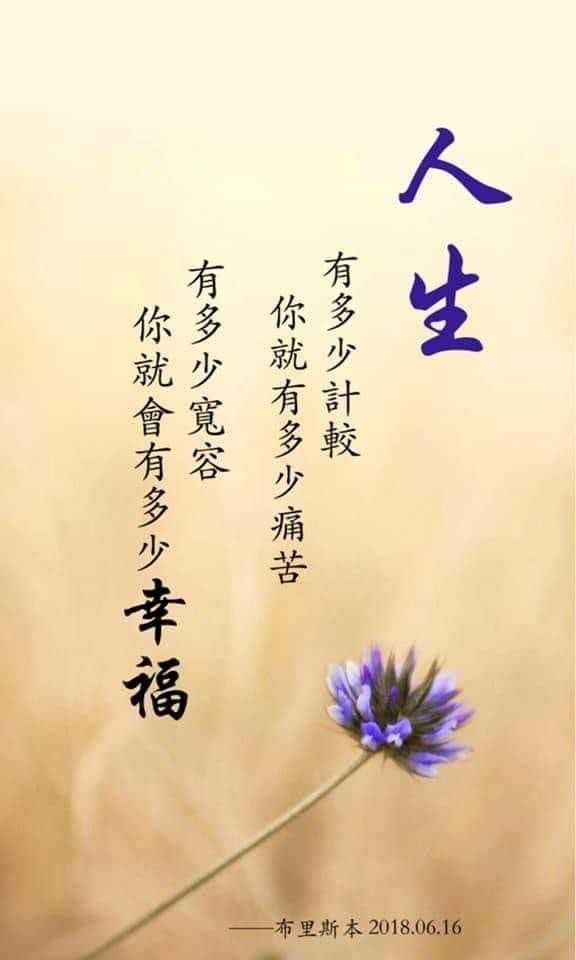 人生
有多少計較
你就有多少痛苦
有多少寬容
你就會有多少幸福
——布里斯本 2018.06.16